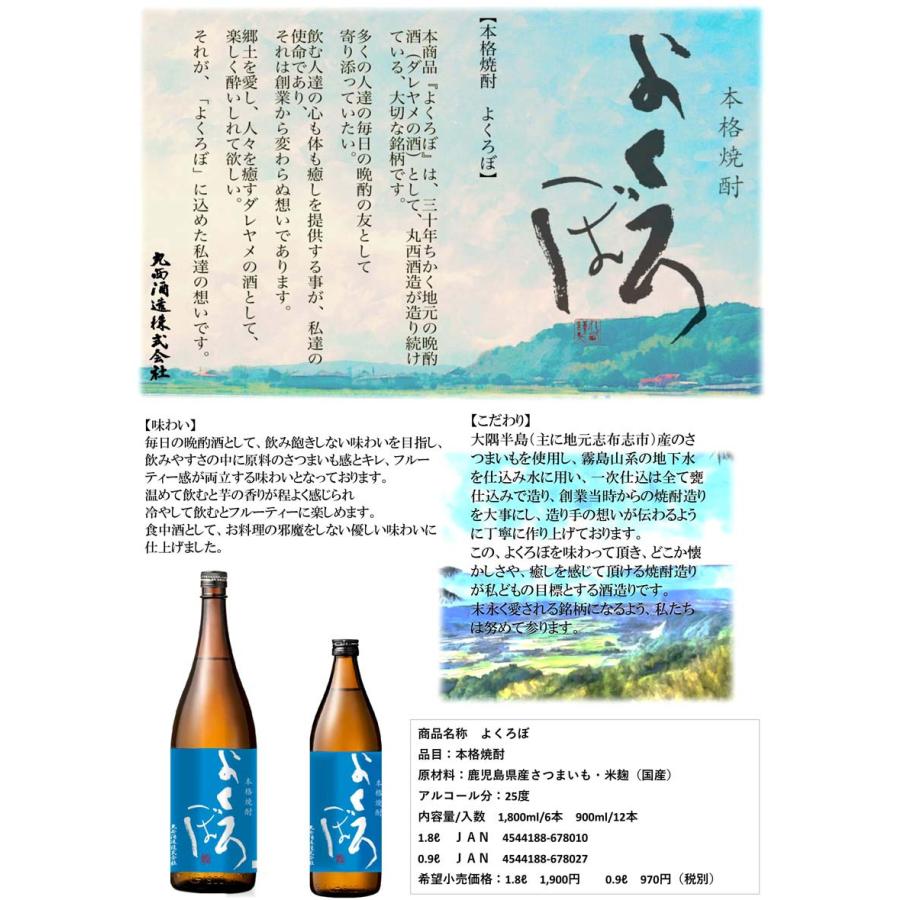 本格焼酎
よくろぼ
【本格焼酎　よくろぼ】
本商品『よくろぼ』は、三十年ちかく地元の晩酌
酒（ダレヤメの酒）として、丸西酒造が造り続け
ている、大切な銘柄です。
多くの人達の毎日の晩酌の友として
寄り添っていたい。
飲む人達の心も体も癒しを提供する事が、私達の
使命であり、
それは創業から変わらぬ想いであります。
郷土を愛し、人々を癒すダレヤメの酒として、
楽しく酔いしれて欲しい。
それが、「よくろぼ」に込めた私達の想いです。
丸西酒造株式会社
【味わい】
毎日の晩酌酒として、飲み飽きしない味わいを目指し、
飲みやすさの中に原料のさつまいも感とキレ、フルー
ティー感が両立する味わいとなっております。
温めて飲むと芋の香りが程よく感じられ
冷やして飲むとフルーティーに楽しめます。
食中酒として、お料理の邪魔をしない優しい味わいに
仕上げました。
【こだわり】
大隅半島（主に地元志布志市）産のさ
つまいもを使用し、霧島山系の地下水
を仕込み水に用い、一次仕込は全て甕
仕込みで造り、創業当時からの焼酎造り
を大事にし、造り手の想いが伝わるよう
に丁寧に作り上げております。
この、よくろぼを味わって頂き、どこか懐
かしさや、癒しを感じて頂ける焼酎造り
が私どもの目標とする酒造りです。
末永く愛される銘柄になるよう、私たち
は努めて参ります。
本格焼酎
よくろぼ
丸西酒造株式会社
本格焼酎
よくろぼ
丸西酒造株式会社
商品名称　よくろぼ
品目：本格焼酎
原材料：鹿児島県産さつまいも・米麹（国産）
アルコール分：25度
内容量/入数　1,800ml/6本　900ml/12本
1.8ℓ　ＪＡＮ　4544188-678010
0.9ℓ　ＪＡＮ　4544188-678027
希望小売価格：1.8ℓ　1,900円　　0.9ℓ　970円（税別）